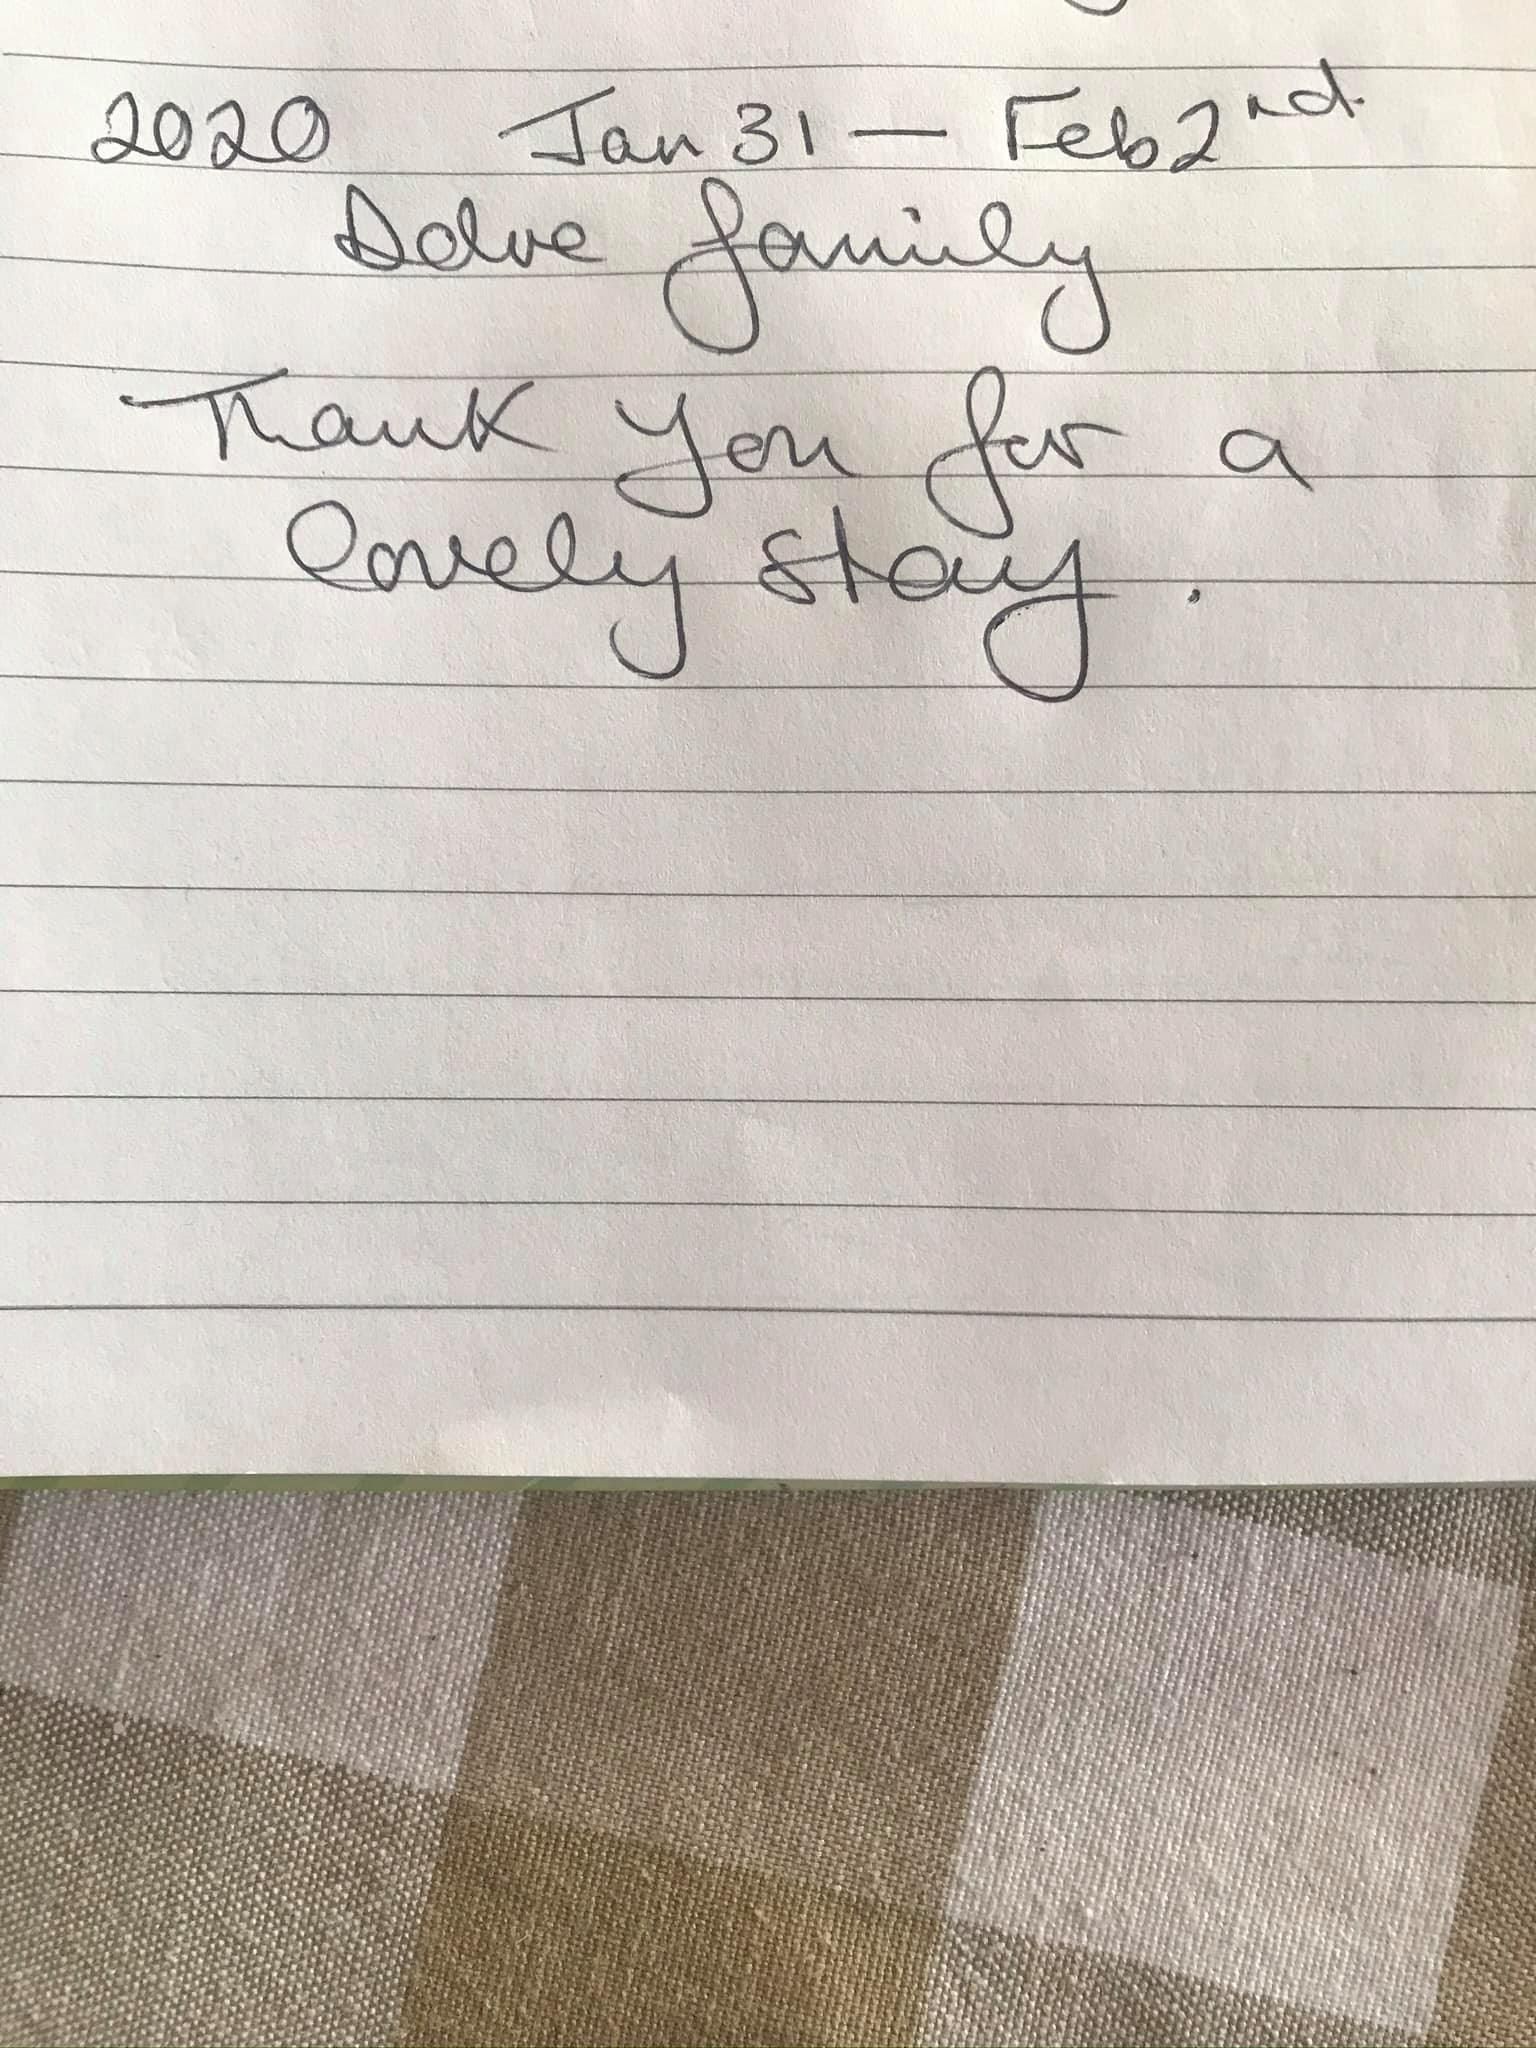 2020 Jan 31 — Feb 2nd.
family
Thank you for a
lovely stay.